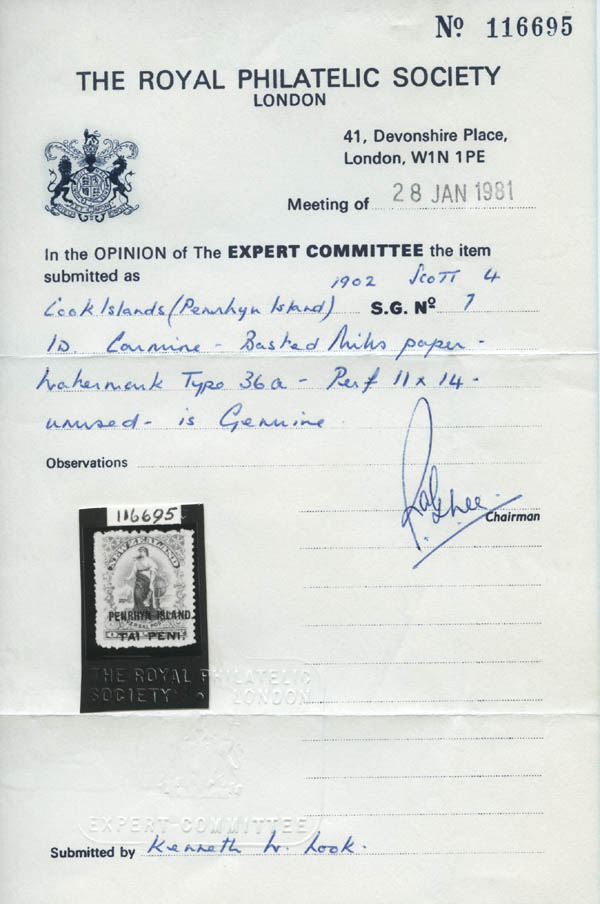 No 116695
THE ROYAL PHILATELIC SOCIETY
LONDON
41, Devonshire Place,
London, W1N 1PE
Meeting of 28 JAN 1981
In the OPINION of The EXPERT COMMITTEE the item
submitted as 1902 Scott 4
Cook Islands (Penrhyn Island) S.G. No 7
1D. Carmine - Basted Mills paper -
Watermark Type 36a - Perf 11 x 14 -
unused - is Genuine.
Observations
Chairman
116695
NEW ZEALAND
PENRHYN ISLAND.
TAI PENI
THE ROYAL PHILATELIC
SOCIETY LONDON
EXPERT COMMITTEE
Submitted by Kenneth W. Look.